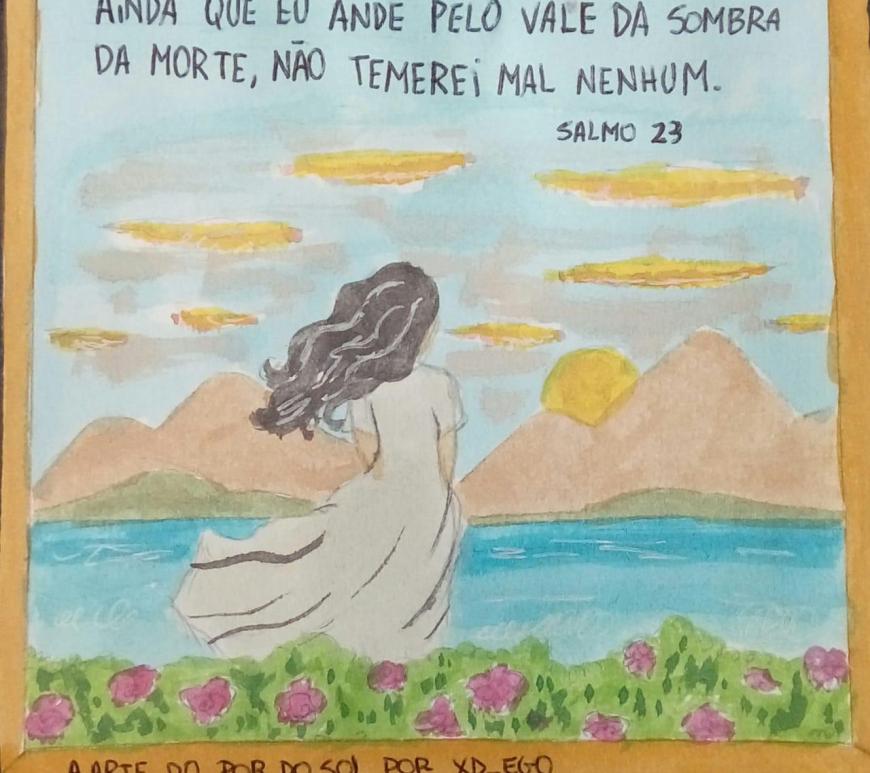 AiNDA QUE EU ANDE PELO VALE DA SOMBRA
DA MORTE, NÃO TEMEREi MAL NENHUM.
SALMO 23
A ARTE DO POR DO SOL POR XD_EGO